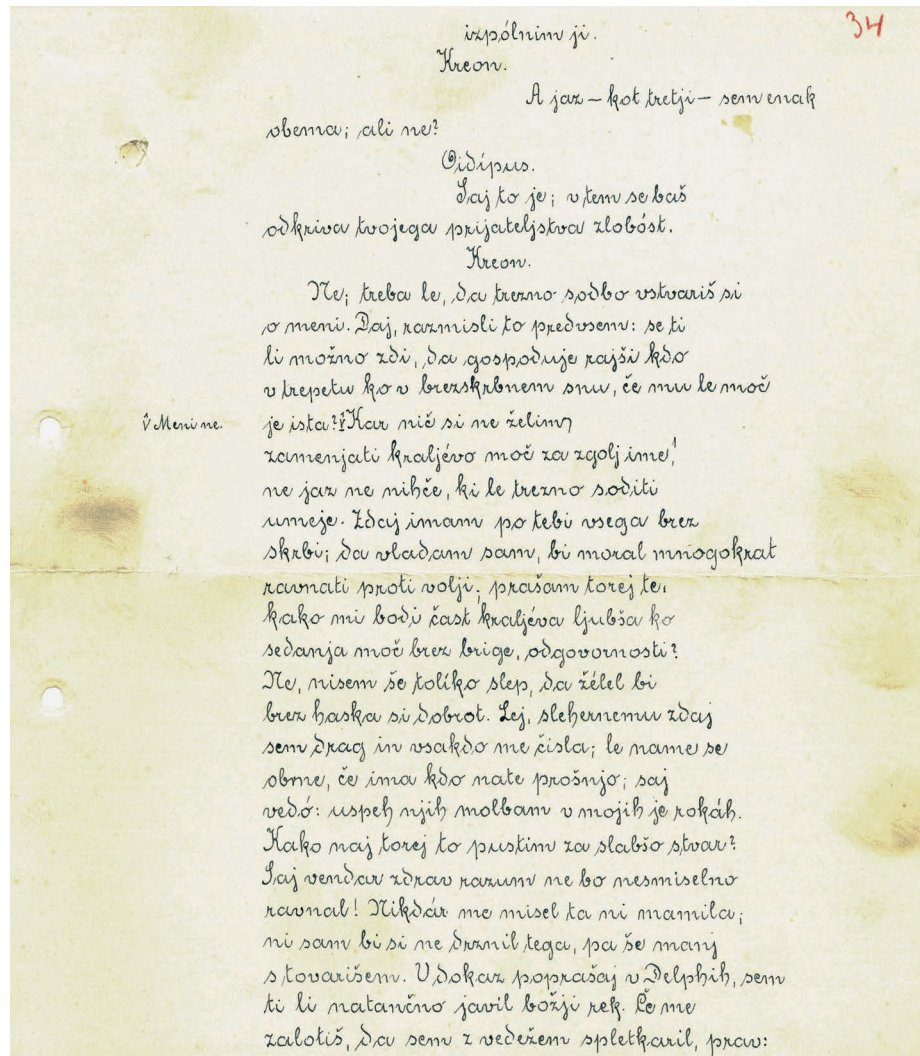 34
izpólnim ji.
Kreon.
A jaz – kot tretji – sem enak
obema; ali ne?
Oidípus.
Saj to je; v tem se baš
odkriva tvojega prijateljstva zlobóst.
Kreon.
Ne; treba le, da trezno sodbo vstvariš si
o meni. Daj, razmisli to predvsem: se ti
li možno zdi, da gospoduje rajši kdo
v trepetu ko v brezskrbnem snu, če mu le moč
Meni ne. je ista? Kar nič si ne želim
zamenjati kraljévo moč za zgolj ime,
ne jaz ne nihče, ki le trezno soditi
umeje. Zdaj imam po tebi vsega brez
skrbi; da vladam sam, bi moral mnogokrat
ravnati proti volji; prašam torej te:
kako mi bodi čast kraljéva ljubša ko
sedanja moč brez brige, odgovornosti?
Ne, nisem še tolíko slep, da žélel bi
brez haska si dobrot. Lej, slehernemu zdaj
sem drag in vsakdo me čisla; le name se
obrne, če ima kdo nate prošnjo; saj
vedó: uspeh njih molbam v mojih je rokáh.
Kako naj torej to pustim za slabšo stvar?
Saj vendar zdrav razum ne bo nesmiselno
ravnal! Nikdár me misel ta ni mamila;
ni sam bi si ne drznil tega, pa še manj
s tovarišem. V dokaz poprašaj v Delphih, sem
ti li natančno javil božji rek. Če me
zalotiš, da sem z vedežem spletkaril, prav: